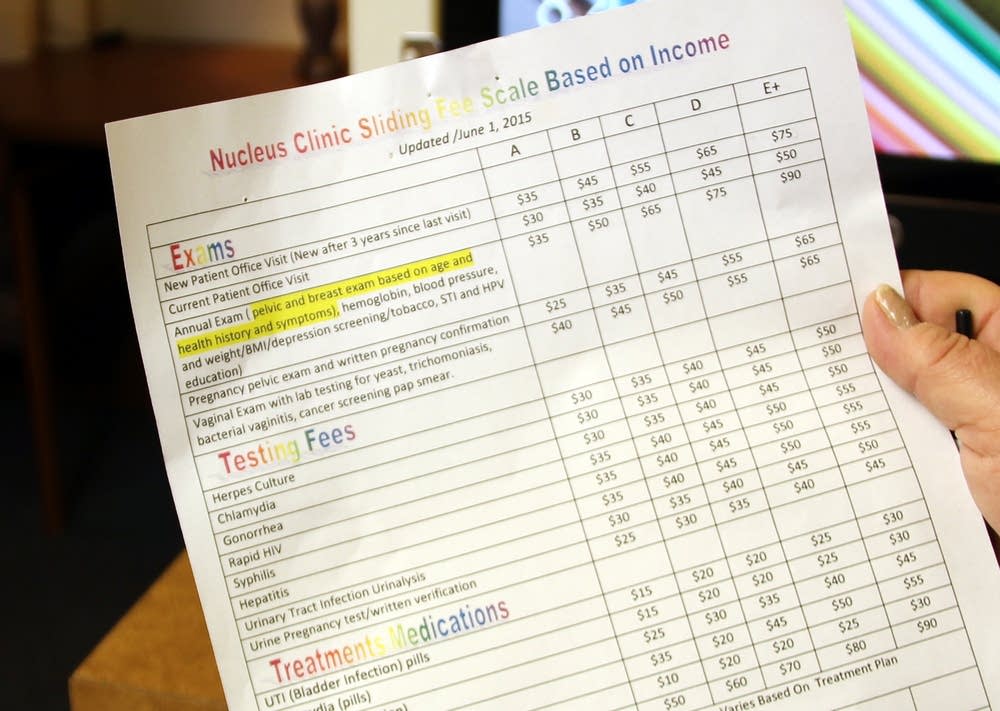 Nucleus Clinic Sliding Fee Scale Based on Income
Updated /June 1, 2015
A B C D E+
Exams
New Patient Office Visit (New after 3 years since last visit) $35 $45 $55 $65 $75
Current Patient Office Visit $30 $35 $40 $45 $50
Annual Exam ( pelvic and breast exam based on age and $35 $50 $65 $75 $90
health history and symptoms), hemoglobin, blood pressure,
and weight/BMI/depression screening/tobacco, STI and HPV
education)
Pregnancy pelvic exam and written pregnancy confirmation $25 $35 $45 $55 $65
Vaginal Exam with lab testing for yeast, trichomoniasis, $40 $45 $50 $55 $65
bacterial vaginitis, cancer screening pap smear.
Testing Fees
Herpes Culture $30 $35 $40 $45 $50
Chlamydia $30 $35 $40 $45 $50
Gonorrhea $30 $35 $40 $45 $50
Rapid HIV $35 $40 $45 $50 $55
Syphilis $35 $40 $45 $50 $55
Hepatitis $35 $40 $45 $50 $55
Urinary Tract Infection Urinalysis $30 $35 $40 $45 $50
Urine Pregnancy test/written verification $25 $30 $35 $40 $45
Treatments Medications
UTI (Bladder Infection) pills $15 $20 $20 $25 $30
(pills) $15 $20 $20 $25 $30
$25 $30 $35 $40 $45
$35 $20 $45 $50 $55
$10 $20 $20 $25 $30
$50 $60 $70 $80 $90
Varies Based On Treatment Plan